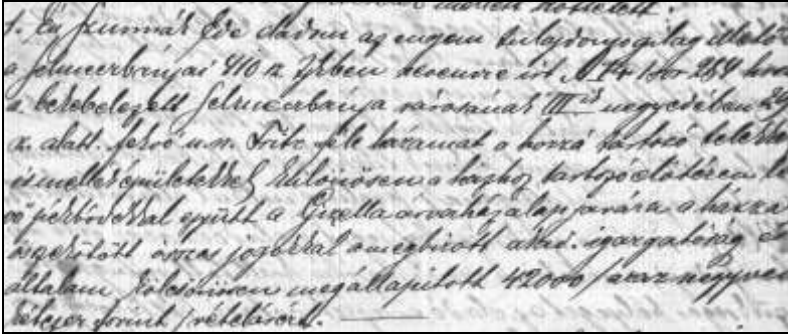 1. Én Szumrák Ede eladom az engem tulajdonjogilag illető
a selmeczbányai 410 sz. tjkben nevemre írt A I + 1 sor 284 hrsz
a. bekebelezett Selmeczbánya városának III ik negyedében 29
sz. alatt fekvő u.n. Fritz féle házamat a hozzá tartozó telekkel
és melléképületekkel, különösen a házhoz tartozó előtéren le
vő székbódékkal együtt a Gizella árvaház alap javára a házzal
összekötött összes jogokkal a megbízott akad. igazgatóság és
általam kölcsönösen megállapított 42000 / azaz negyven
kétezer forint / vételárért.